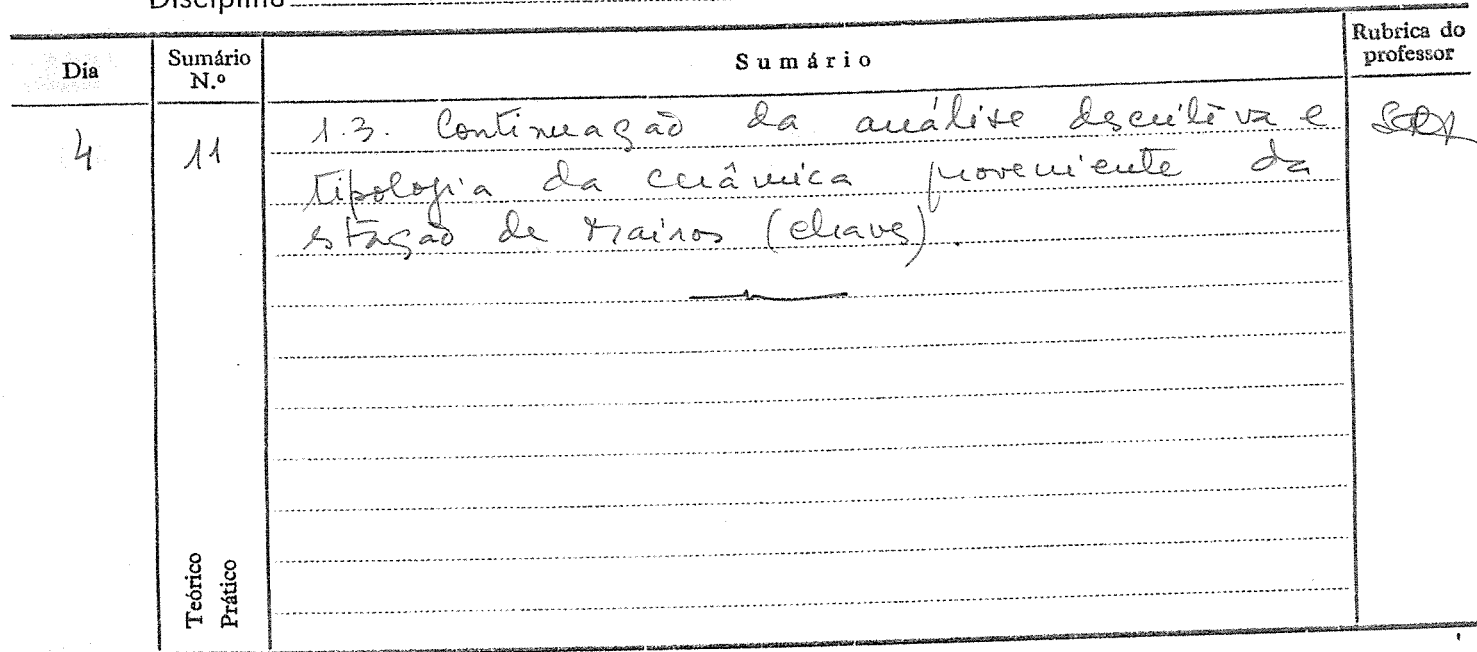 Disciplina
Dia
Sumário N.º
Sumário
Rubrica do professor
4
11
1.3. Continuação da análise descritiva e
tipologia da cerâmica proveniente da
estação de Mairos (Chaves).
Teórico
Prático